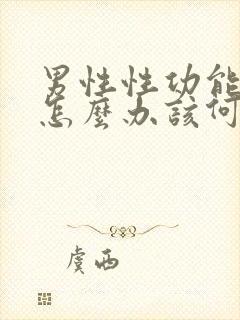 男性性功能
怎麼办該何
虞西